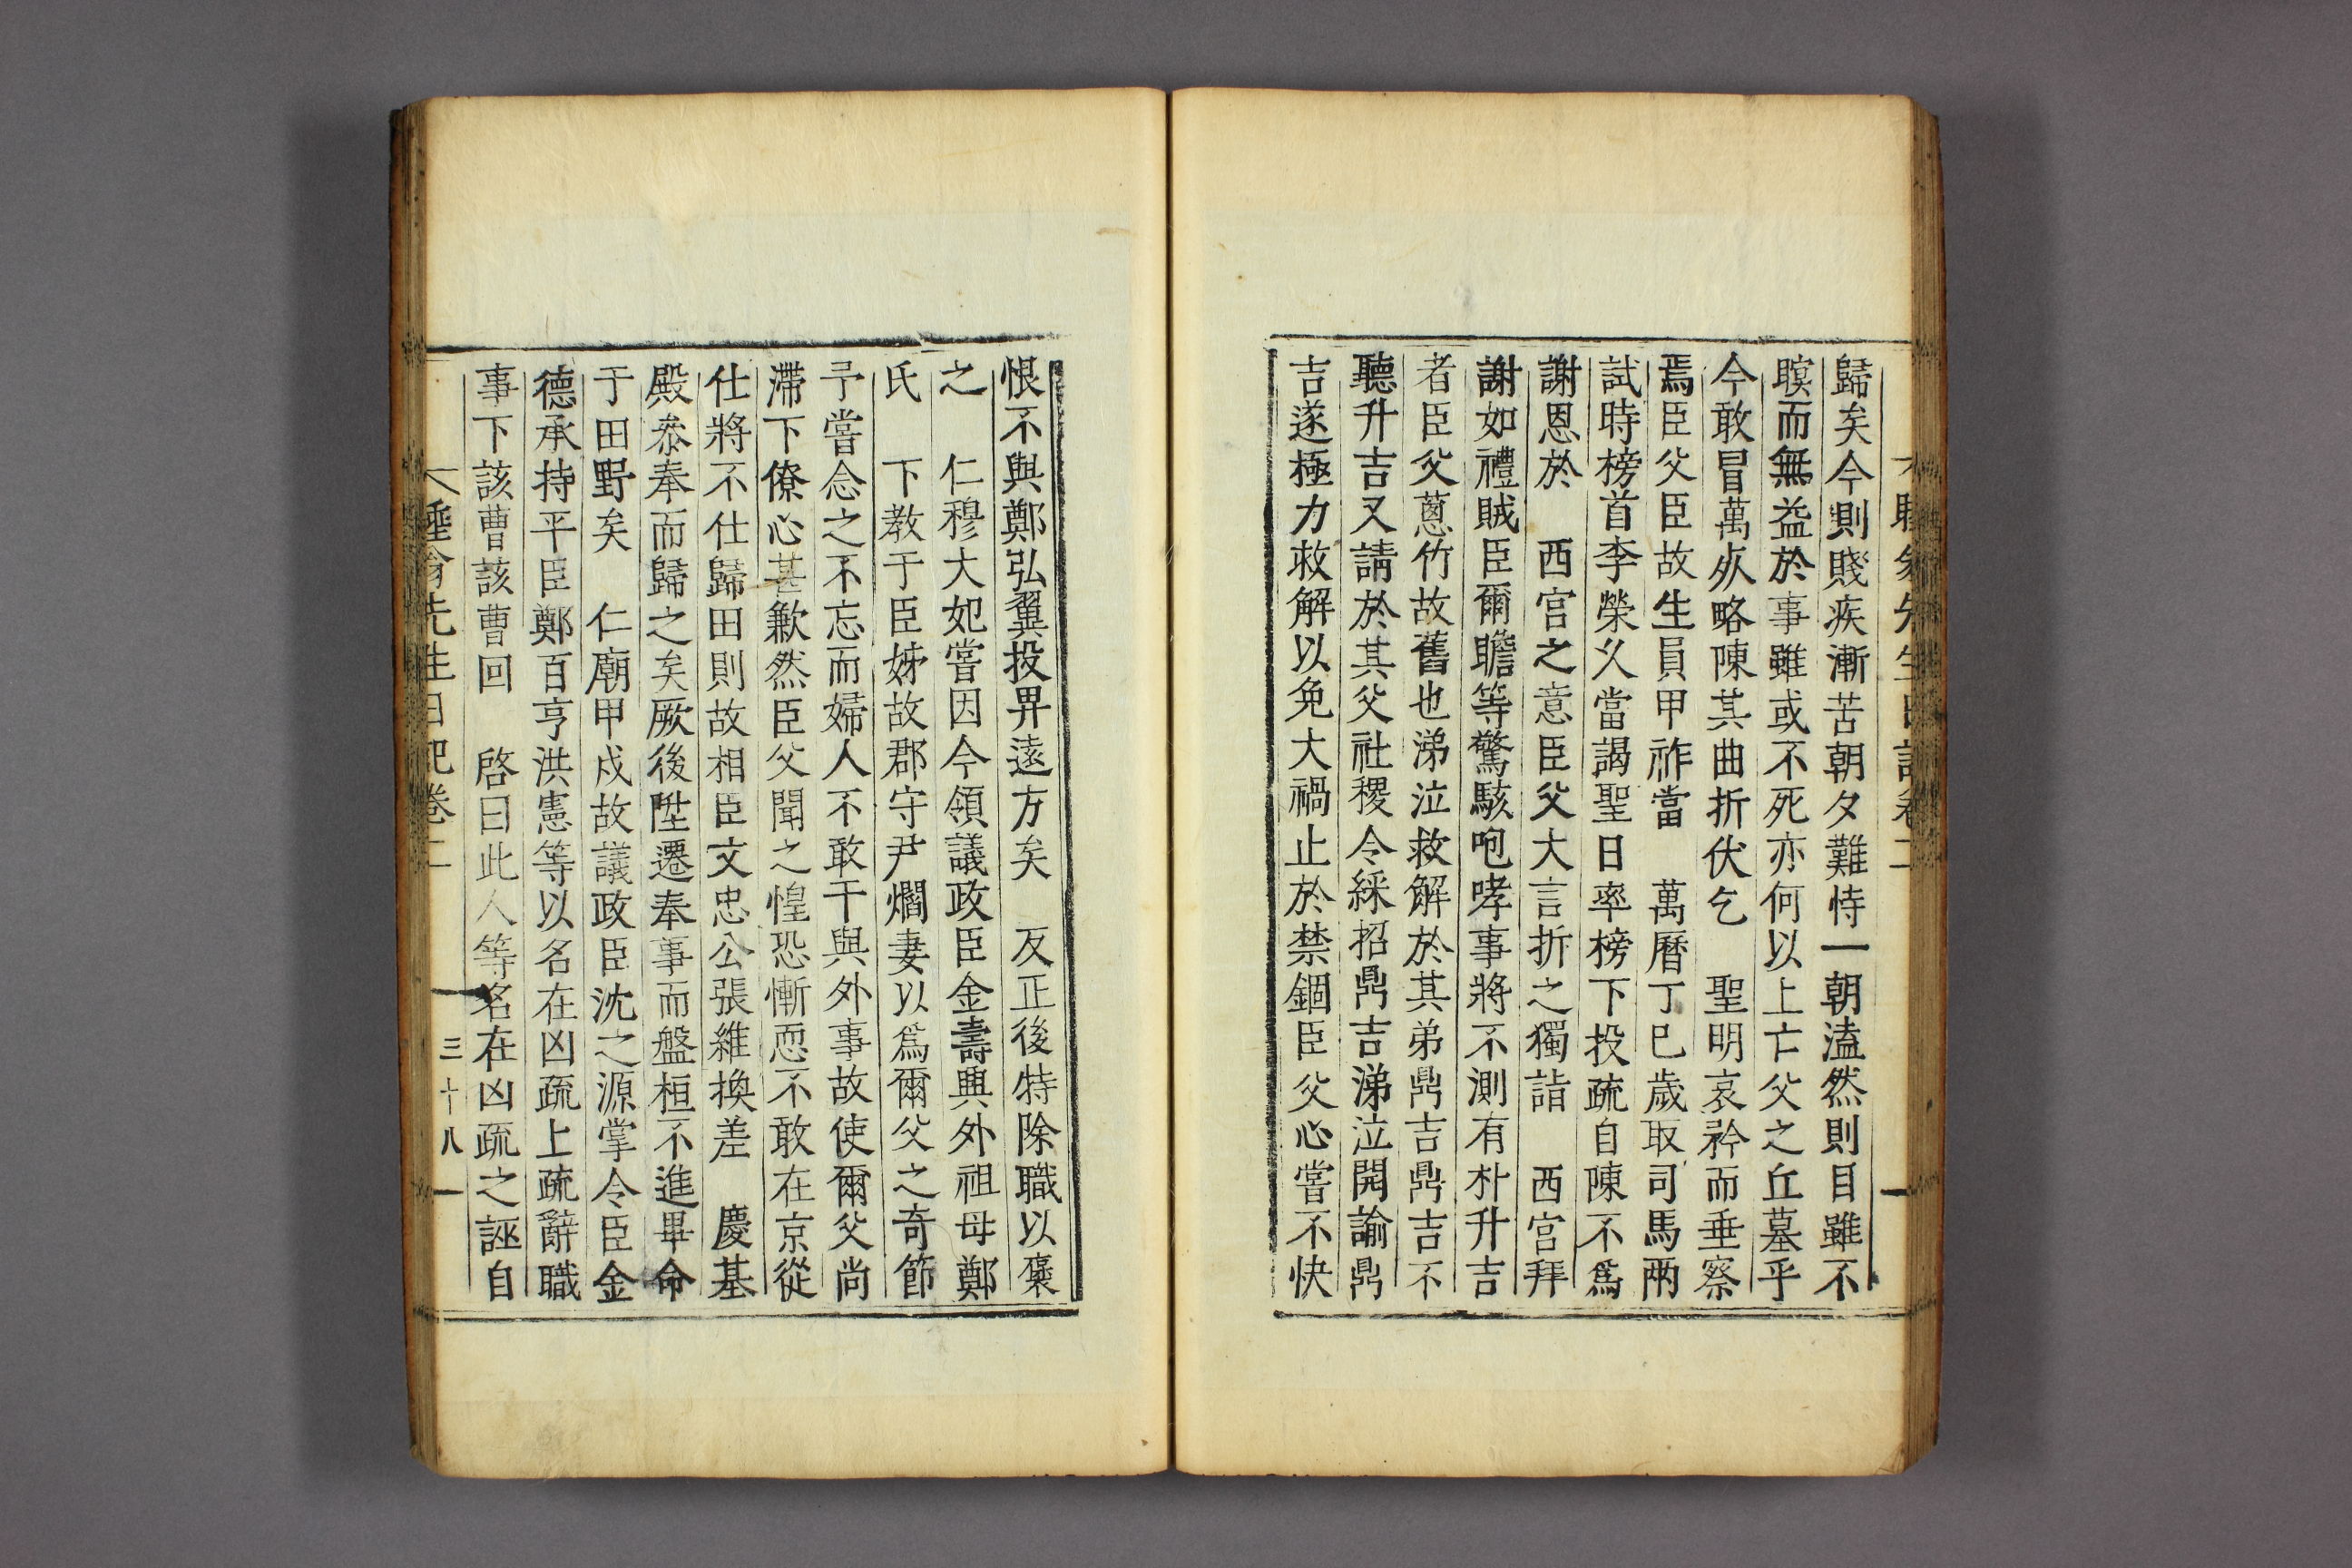 歸矣今則賤疾漸苦朝夕難恃一朝溘然則目雖不
瞑而無益於事雖或不死亦何以上亡父之丘墓乎
今敢冒萬死略陳其曲折伏乞 聖明哀矜而垂察
焉臣父臣故生員甲祚當 萬曆丁巳歲取司馬兩
試時榜首李榮久當謁聖日率榜下投疏自陳不爲
謝恩於 西宮之意臣父大言折之獨詣 西宮拜
謝如禮賊臣爾瞻等驚駭咆哮事將不測有朴升吉
者臣父蔥竹故舊也涕泣救解於其弟鼎吉鼎吉不
聽升吉又請於其父社稷令綵招鼎吉涕泣開諭鼎
吉遂極力救解以免大禍止於禁錮臣父心嘗不快
恨不與鄭弘翼投畀遠方矣 反正後特除職以褒
之 仁穆大妃嘗因今領議政臣金壽興外祖母鄭
氏 下教于臣姊故郡守尹爓妻以爲爾父之奇節
予嘗念之不忘而婦人不敢干與外事故使爾父尚
滯下僚心甚歉然臣父聞之惶恐慚恧不敢在京從
仕將不仕歸田則故相臣文忠公張維換差 慶基
殿叅奉而歸之矣厥後陞遷奉事而盤桓不進畢命
于田野矣 仁廟甲戌故議政臣沈之源掌令臣金
德承持平臣鄭百亨洪憲等以名在凶疏上疏辭職
事下該曹該曹回 啓曰此人等名在凶疏之誣自
睡翁先生日記卷二 三十八